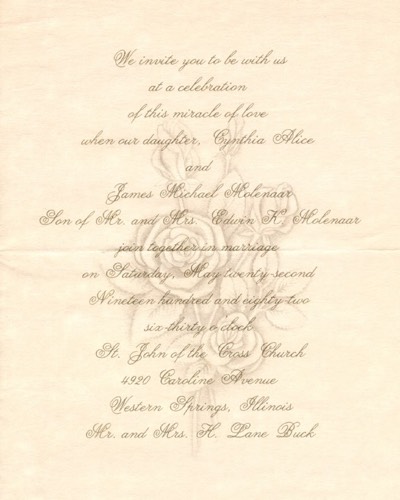 We invite you to be with us
at a celebration
of this miracle of love
when our daughter, Cynthia Alice
and
James Michael Molenaar
Son of Mr. and Mrs. Edwin K. Molenaar
join together in marriage
on Saturday, May twenty-second
Nineteen hundred and eighty-two
six-thirty o'clock
St. John of the Cross Church
4920 Caroline Avenue
Western Springs, Illinois
Mr. and Mrs. H. Lane Buck